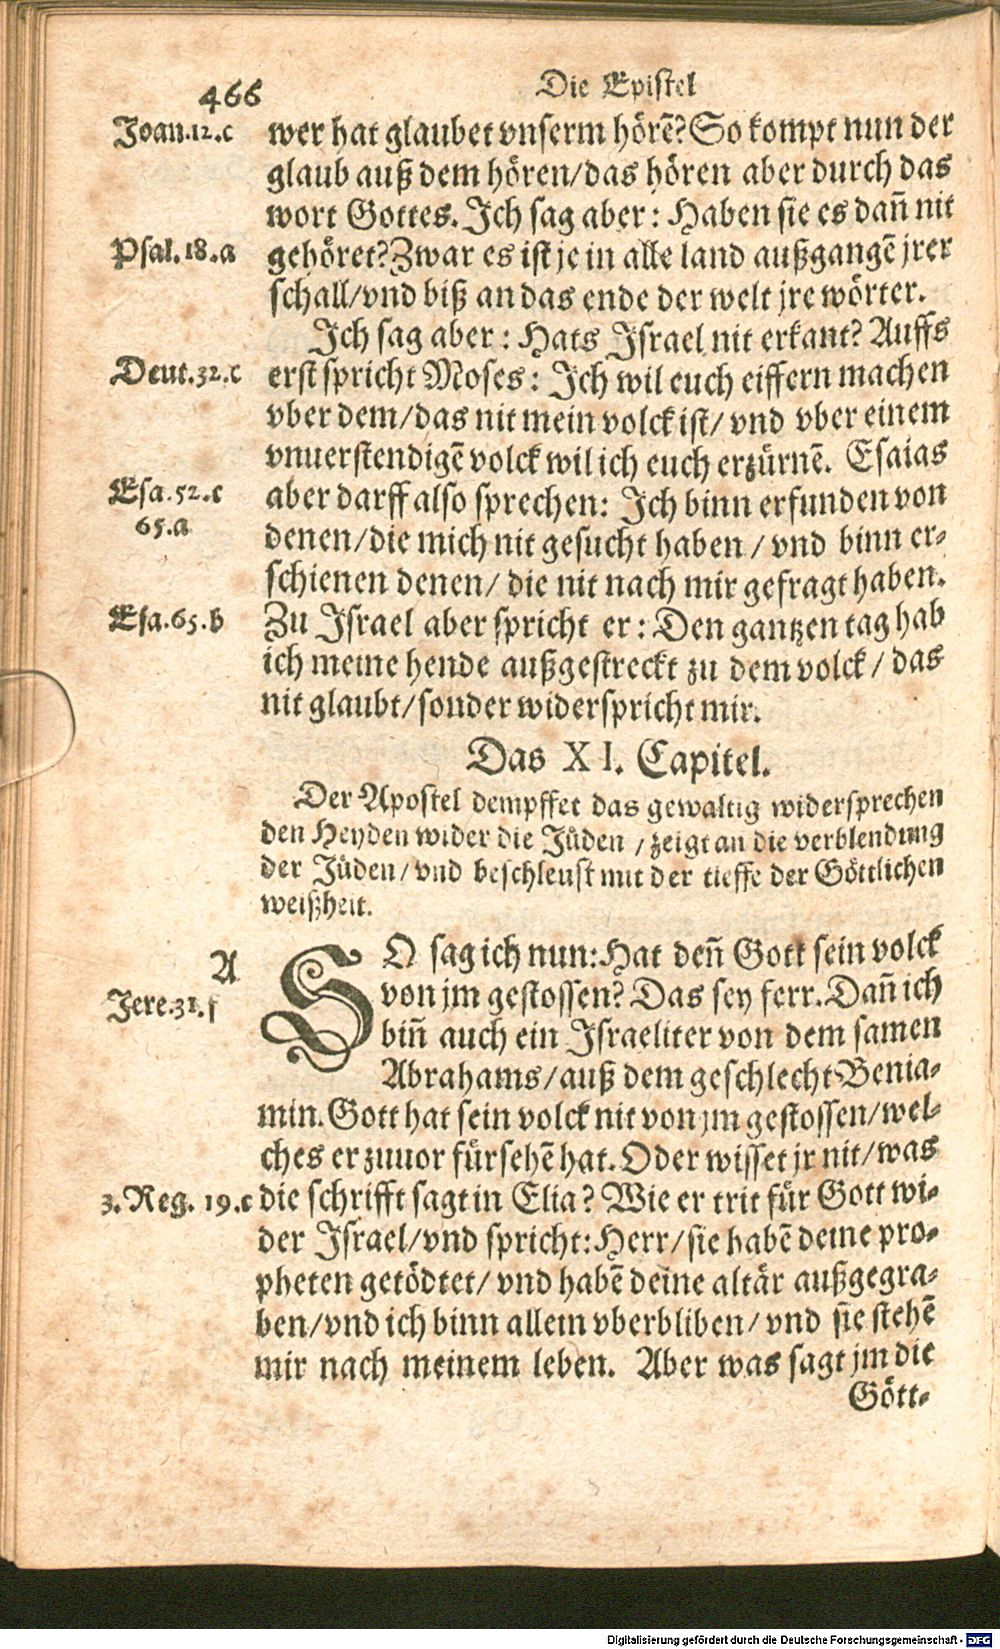 466
Die Epistel
Joan.12.c
wer hat glaubet vnserm hörē? So kompt nun der
glaub auß dem hören/das hören aber durch das
wort Gottes. Ich sag aber: Haben sie es dañ nit
Psal.18.a
gehöret? Zwar es ist je in alle land außgangē jrer
schall/vnd biß an das ende der welt jre wörter.
Ich sag aber: Hats Israel nit erkant? Auffs
Deut.32.c
erst spricht Moses: Ich wil euch eiffern machen
vber dem/das nit mein volck ist/ vnd vber einem
vnuerstendigē volck wil ich euch erzürnē. Esaias
Esa.52.c
65.a
aber darff also sprechen: Ich binn erfunden von
denen/die mich nit gesucht haben / vnd binn er-
schienen denen/ die nit nach mir gefragt haben.
Esa.65.b
Zu Israel aber spricht er: Den gantzen tag hab
ich meine hende außgestreckt zu dem volck / das
nit glaubt/sonder widerspricht mir.
Das XI. Capitel.
Der Apostel dempffet das gewaltig widersprechen
den Heyden wider die Jüden / zeigt an die verblendung
der Jüden/ vnd beschleust mit der tieffe der Göttlichen
weißheit.
A
Jere.31.f
SO sag ich nun: Hat deñ Gott sein volck
von jm gestossen? Das sey ferr. Dañ ich
biñ auch ein Israeliter von dem samen
Abrahams/auß dem geschlecht Benia-
min. Gott hat sein volck nit von jm gestossen/wel-
ches er zuuor fürsehē hat. Oder wisset jr nit/was
3.Reg. 19.c
die schrifft sagt in Elia? Wie er trit für Gott wi-
der Israel/vnd spricht: Herr/sie habē deine pro-
pheten getödtet/ vnd habē deine altär außgegra-
ben/vnd ich binn allein vberbliben/ vnd sie stehē
mir nach meinem leben. Aber was sagt jm die
Gött-
Digitalisierung gefördert durch die Deutsche Forschungsgemeinschaft - DFG